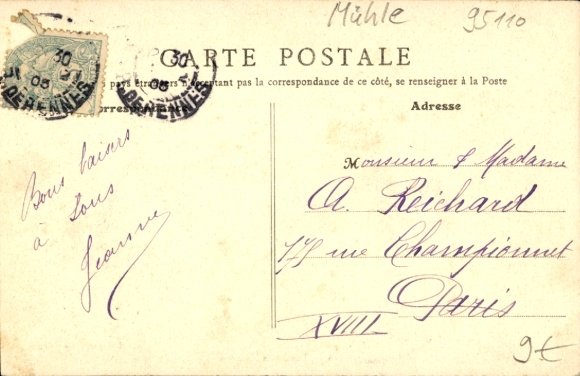 Mühle 95110
CARTE POSTALE
pays étrangers n'acceptant pas la correspondance de ce côté, se renseigner à la Poste
Correspondance
Adresse
30
05
DERENNES
30
05
DERENNES
Bons baisers
à Tous
Jeanne
Monsieur & Madame
A. Reichard
rue Championnet
Paris
XVIII
9€